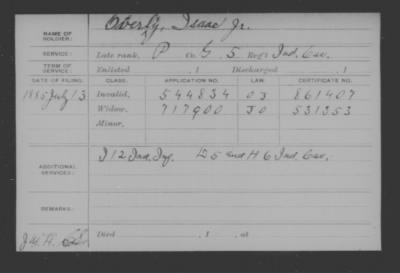 NAME OF SOLDIER: Overly, Isaac Jr.
SERVICE: Late rank, P Co. G, 5 Reg't Ind. Cav.
TERM OF SERVICE: Enlisted , 1 Discharged , 1
DATE OF FILING. CLASS. APPLICATION NO. LAW. CERTIFICATE NO.
1885 July 13 Invalid, 544834 03 861407
Widow, 717900 JO 531353
Minor,
ADDITIONAL SERVICES: I 12 Ind. Inf. D 5 and H 6 Ind. Cav.
REMARKS:
Died , 1 , at